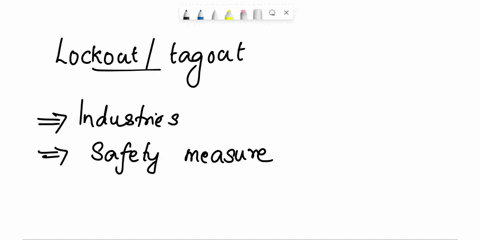 Lockout / tagout
⇒ Industries
⇒ Safety measure